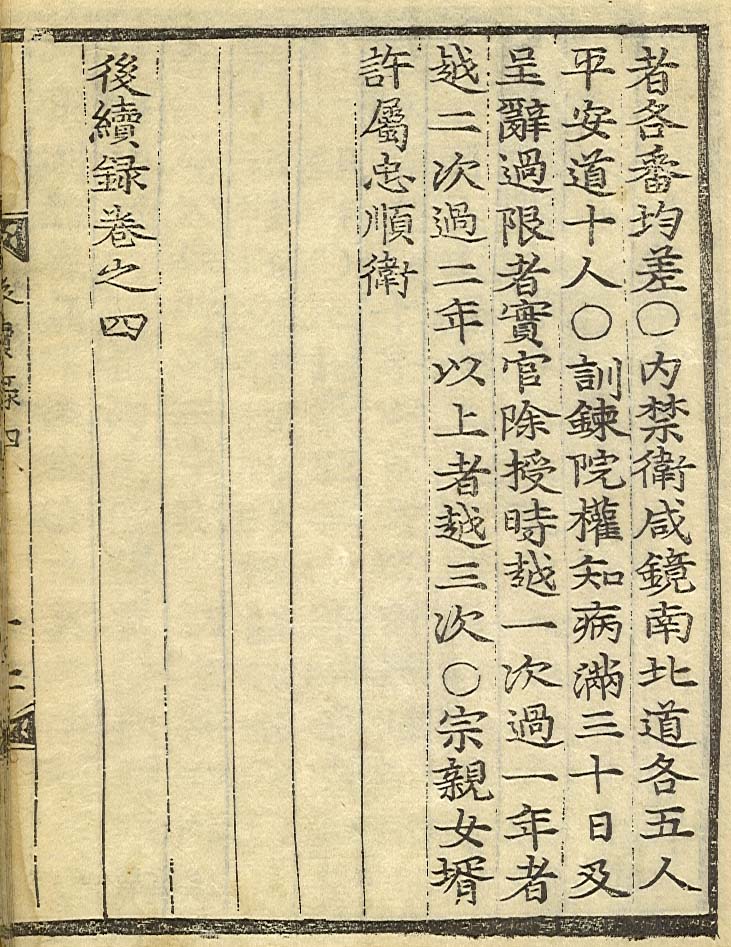 者各番均差○内禁衛咸鏡南北道各五人
平安道十人○訓鍊院權知病滿三十日及
呈辭過限者實官除授時越一次過一年者
越二次過二年以上者越三次○宗親女壻
許屬忠順衛
後續録卷之四
後續録四